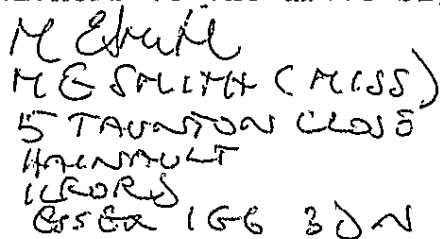 M E Smith
M E SMITH (MISS)
5 TAUNTON CLOSE
HAINAULT
ILFORD
ESSEX IG6 3DN